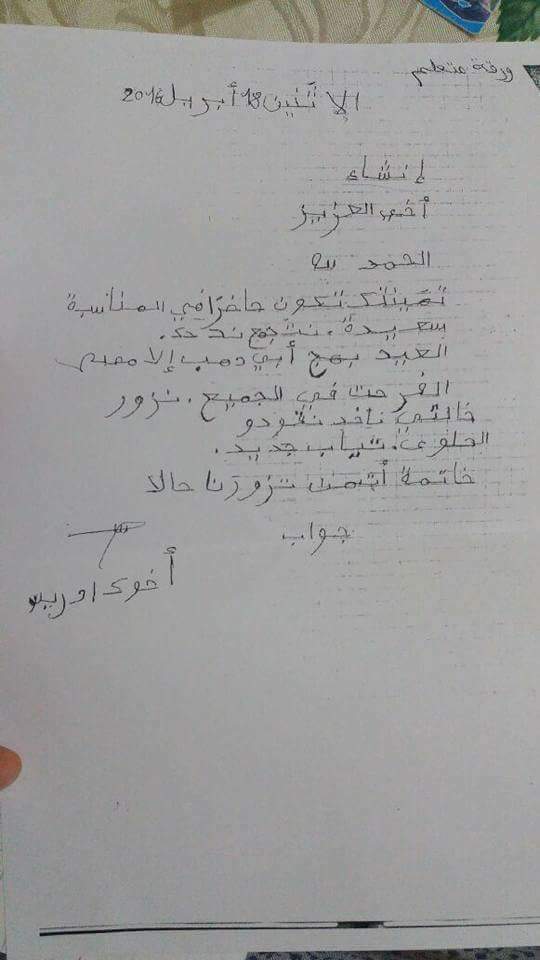 ورقة متعلم
الاثنين 18 أبريل 2016
إنشاء
أخي العزيز
الحمد لله
تمنيتك تكون حاضرا في المناسبة
سعيدة. نتجمع
العيد بهج أبي دهب إلا
الفرحت في الجميع. نزور
خالتي ناخد نقودو
الحلوى. تياب جديد.
خاتمة أتمنى تزورنا حالا
جواب
أخوك ادريس